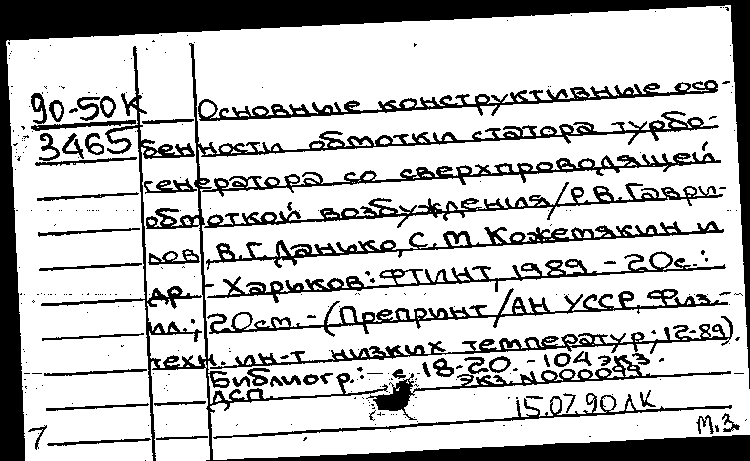 90-50К Основные конструктивные осо-
3465 бенности обмотки статора турбо-
генератора со сверхпроводящей
обмоткой возбуждения/Р.В.Гаври-
лов, В.Г.Данько, С.М.Кожемякин и
др. - Харьков: ФТИНТ, 1989. - 20с.:
ил.; 20см. - (Препринт/АН УССР, Физ.-
техн. ин-т низких температур; 12-89).
Библиогр.: с. 18-20. - 104 экз.
ДСП. экз. N000044.
15.07.90 ЛК.
7 М.З.